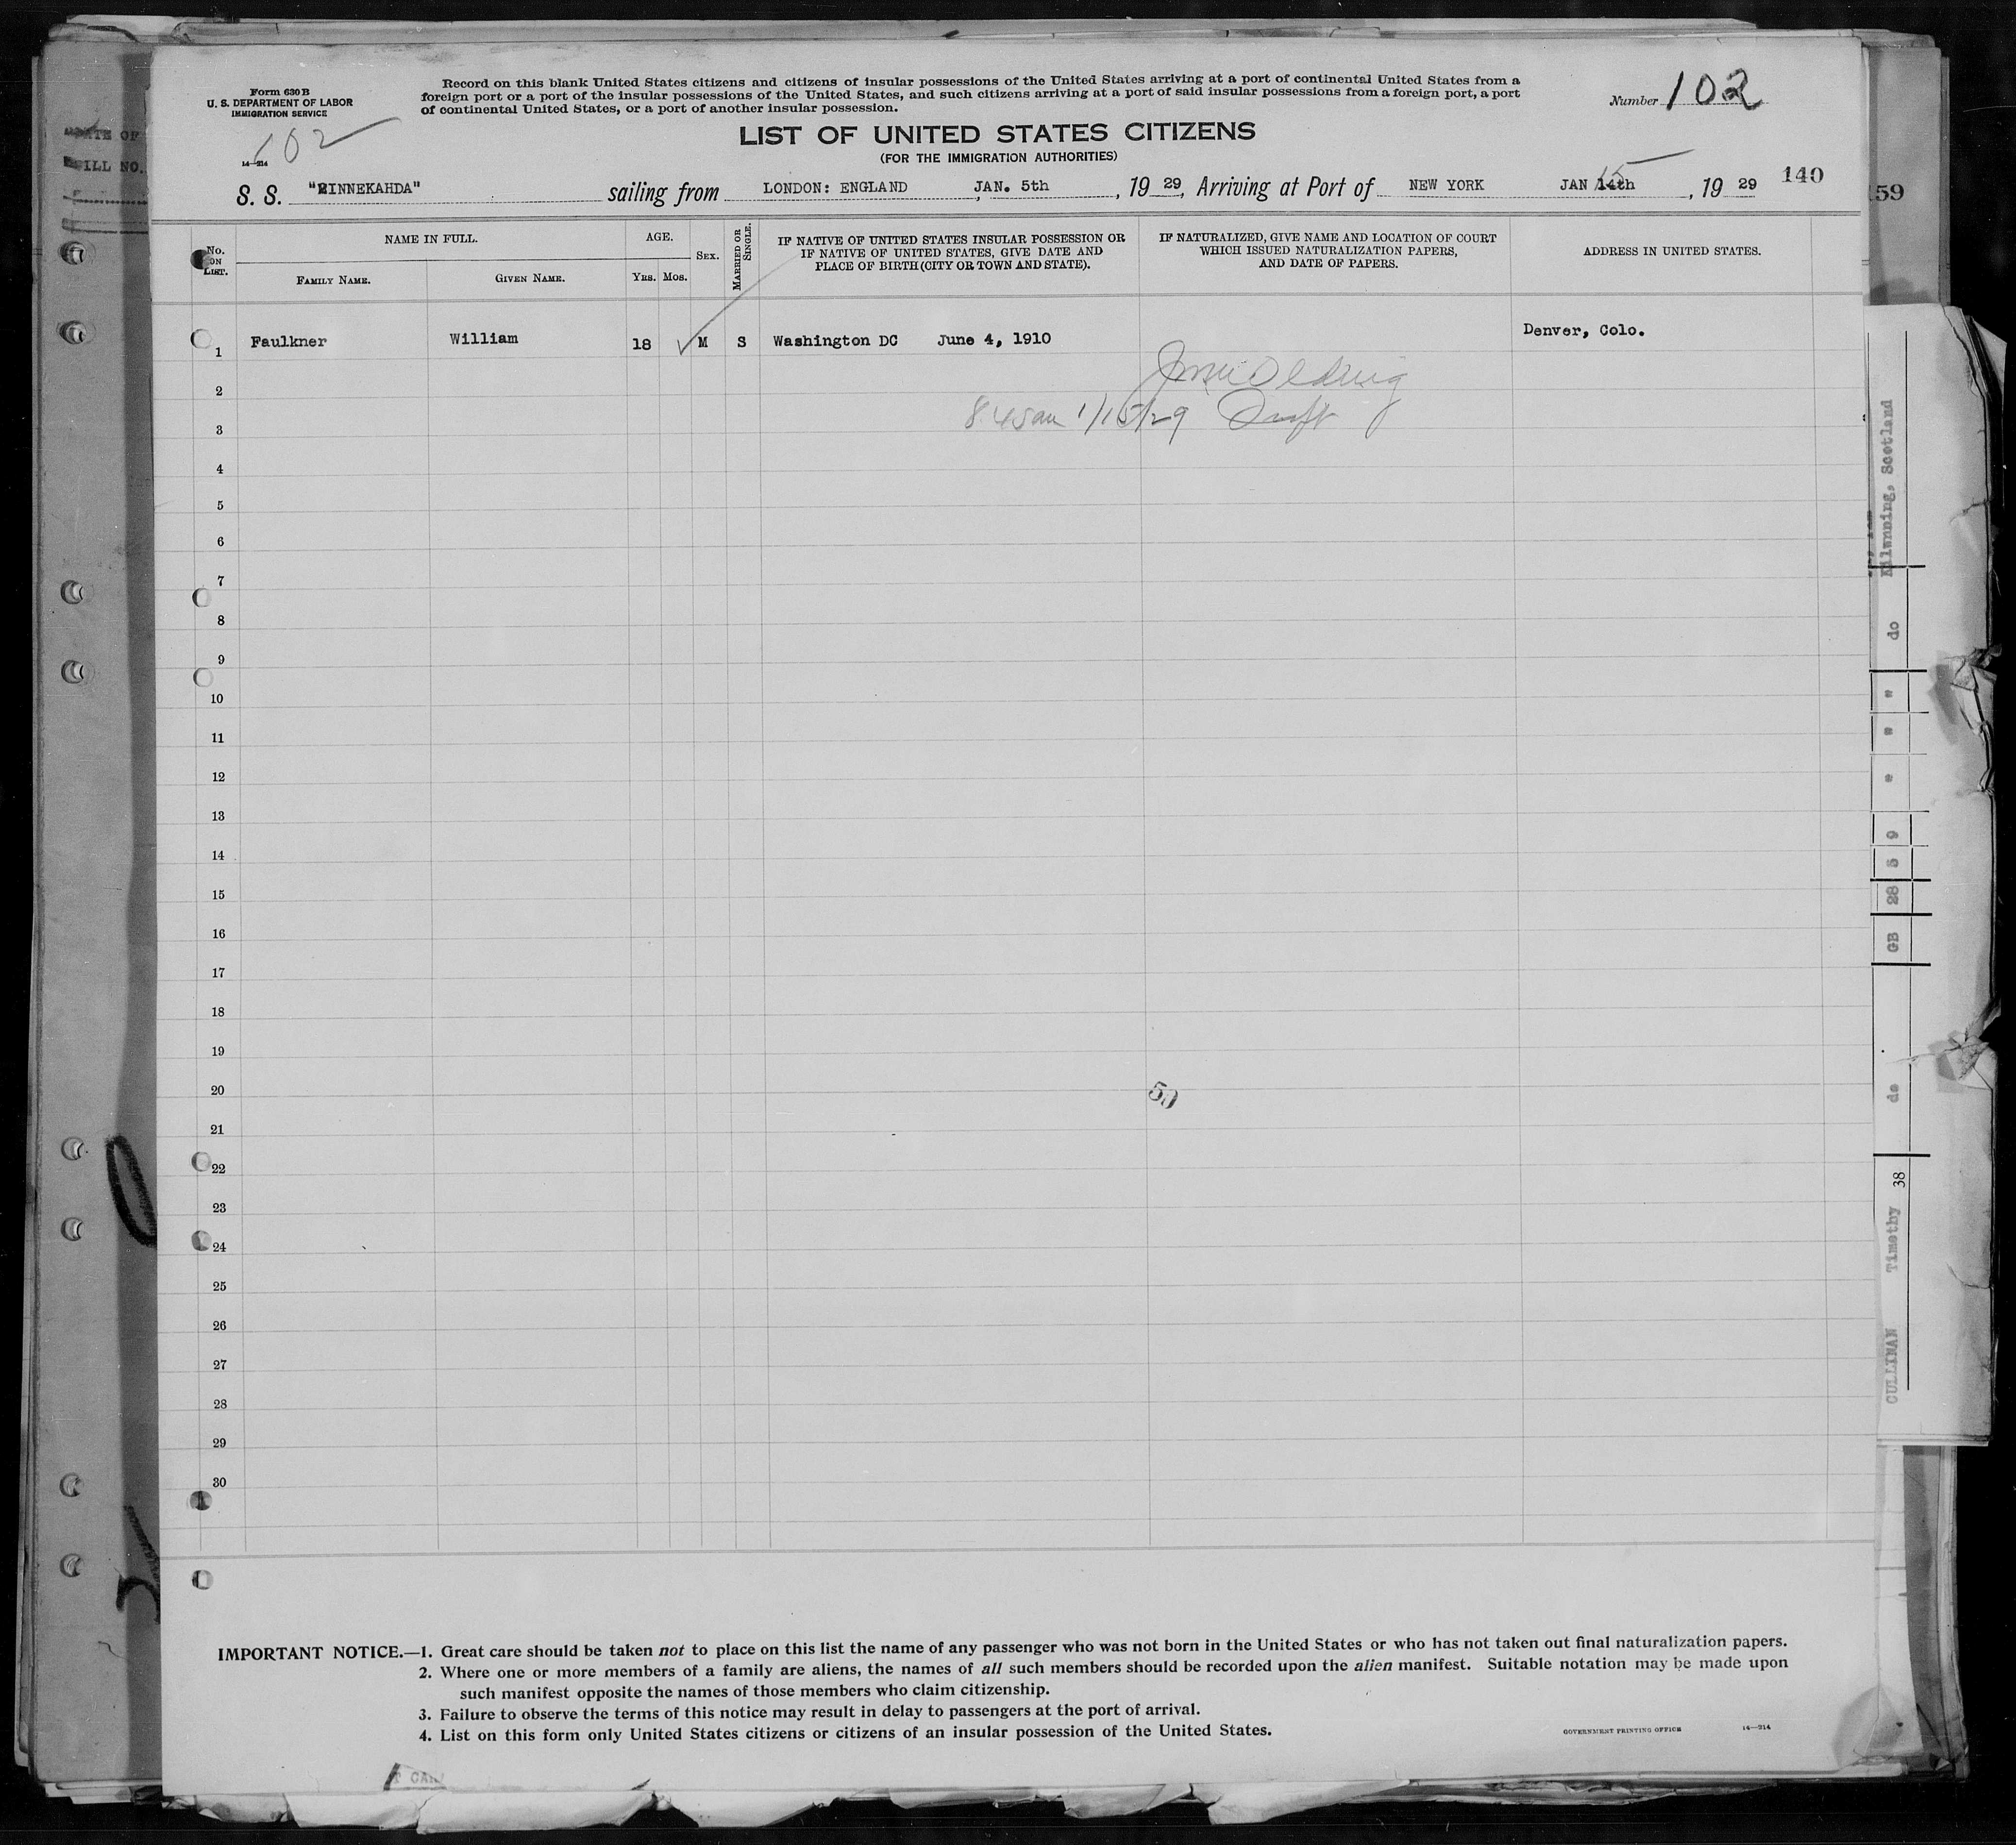 Form 630 B
U. S. DEPARTMENT OF LABOR
IMMIGRATION SERVICE
14—214
102
Record on this blank United States citizens and citizens of insular possessions of the United States arriving at a port of continental United States from a
foreign port or a port of the insular possessions of the United States, and such citizens arriving at a port of said insular possessions from a foreign port, a port
of continental United States, or a port of another insular possession.
Number 102
LIST OF UNITED STATES CITIZENS
(FOR THE IMMIGRATION AUTHORITIES)
S. S. "MINNEKAHDA" sailing from LONDON: ENGLAND JAN. 5th, 1929, Arriving at Port of NEW YORK JAN 14th 15, 1929 140
59
No. ON LIST.
NAME IN FULL.
FAMILY NAME.
GIVEN NAME.
AGE.
YRS. MOS.
SEX.
MARRIED OR SINGLE.
IF NATIVE OF UNITED STATES INSULAR POSSESSION OR
IF NATIVE OF UNITED STATES, GIVE DATE AND
PLACE OF BIRTH (CITY OR TOWN AND STATE).
IF NATURALIZED, GIVE NAME AND LOCATION OF COURT
WHICH ISSUED NATURALIZATION PAPERS,
AND DATE OF PAPERS.
ADDRESS IN UNITED STATES.
1 Faulkner William 18 M S Washington DC June 4, 1910 Denver, Colo.
2
8.45am 1/15/29
3
4
5
6
7
8
9
10
11
12
13
14
15
16
17
18
19
20
50
21
22
23
24
25
26
27
28
29
30
Kilwnning, Scotland
do
"
"
"
9
5
28
GB
do
38
Timothy
CULLINAN
IMPORTANT NOTICE.—1. Great care should be taken not to place on this list the name of any passenger who was not born in the United States or who has not taken out final naturalization papers.
2. Where one or more members of a family are aliens, the names of all such members should be recorded upon the alien manifest. Suitable notation may be made upon
such manifest opposite the names of those members who claim citizenship.
3. Failure to observe the terms of this notice may result in delay to passengers at the port of arrival.
4. List on this form only United States citizens or citizens of an insular possession of the United States.
GOVERNMENT PRINTING OFFICE 14—214